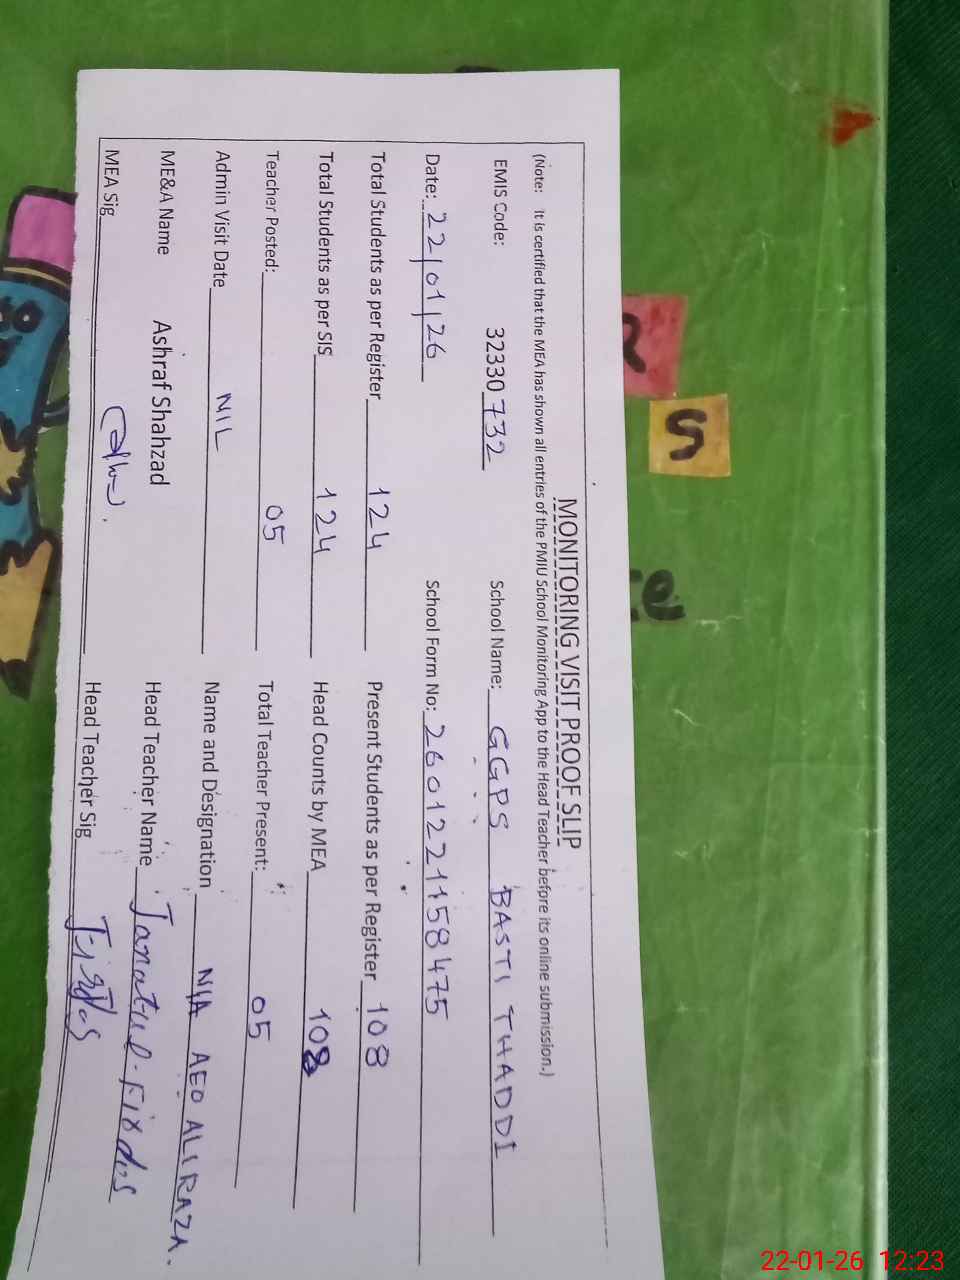 MONITORING VISIT PROOF SLIP
(Note: It is certified that the MEA has shown all entries of the PMIU School Monitoring App to the Head Teacher before its online submission.)
EMIS Code: 32330732 School Name: GGPS BASTI THADDI
Date: 22/01/26 School Form No: 2601221158475
Total Students as per Register 124 Present Students as per Register 108
Total Students as per SIS 124 Head Counts by MEA 108
Teacher Posted: 05 Total Teacher Present: 05
Admin Visit Date NIL Name and Designation N/A AEO ALI RAZA.
ME&A Name Ashraf Shahzad Head Teacher Name Janatul-Firdos
MEA Sig Head Teacher Sig Firdos
S
22-01-26 12:23